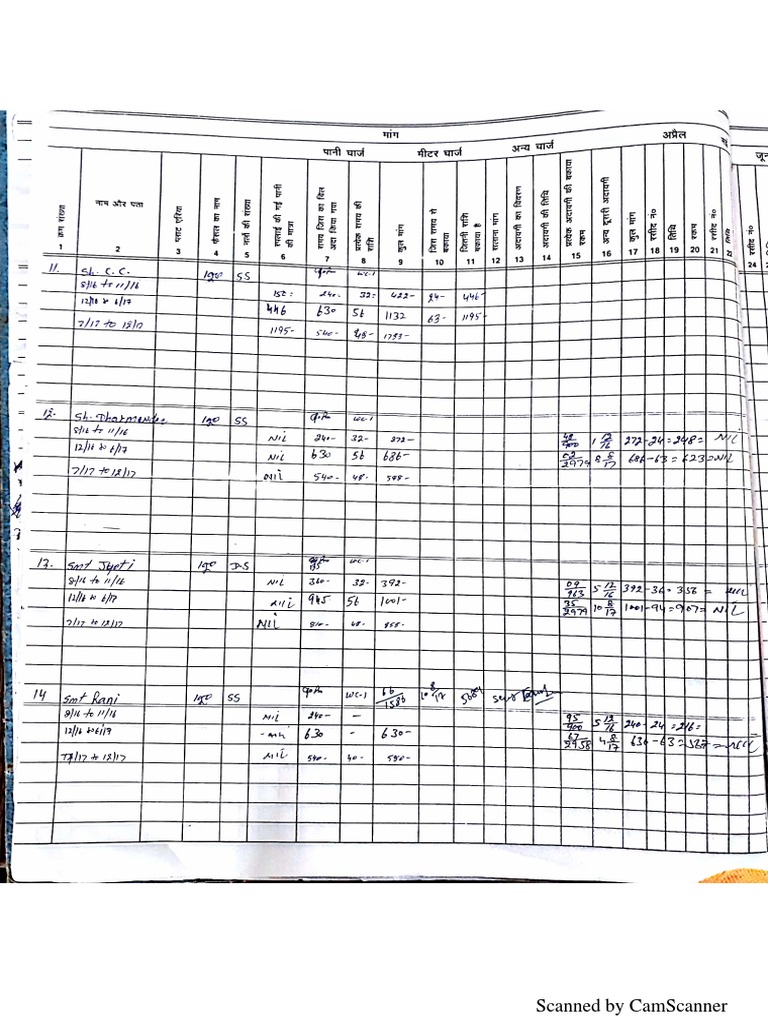 मांग अप्रैल
पानी चार्ज मीटर चार्ज अन्य चार्ज
जून
क्रम संख्या
नाम और पता
प्लाट एरिया
नलों की संख्या
सप्लाई की गई पानी की मात्रा
समय जिस का बिल अदा किया गया
प्रत्येक समय की राशि
कुल मांग
जिस समय से बकाया
जितनी राशि बकाया है
सलाना मांग
अदायगी का विवरण
अदायगी की तिथि
प्रत्येक अदायगी की बकाया रकम
अन्य दूसरी अदायगी
कुल मांग
रसीद न०
तिथि
रकम
रसीद न०
तिथि
रसीद न०
1 2 3 4 5 6 7 8 9 10 11 12 13 14 15 16 17 18 19 20 21 22 24
11. Sh. C. C. 190 SS WC-1
8/16 to 11/16 240- 32= 422- 24- 446-
12/16 to 6/17 446 630 56 1132 63- 1195-
7/17 to 12/17 1195- 540- 48-
12. Sh. Dharmender 190 SS WC-1
8/16 to 11/16 NIL 240- 32- 272- 1 12/16 272-24=248= NIL
12/16 to 6/17 NIL 630 56 686- 02/2979 8 8/17 686-63=623=NIL
7/17 to 12/17 NIL 540- 48-
13. Smt Jyoti 190 DS WC-1
8/16 to 11/16 NIL 360- 32- 392- 09/963 5 12/16 392-36=356=
12/16 to 6/17 Nil 945 56 1001- 35/2979 10 8/17 1001-94=907= NIL
7/17 to 12/17 NIL 810- 48-
14 Smt Rani 190 SS WC-1 66/1586
8/16 to 11/16 NIL 240- - 95/900 5 12/16 240-24=216=
12/16 to 6/17 630 - 630- 67/2958 4 8/17 630-63=567=
7/17 to 12/17 NIL 540-
Scanned by CamScanner